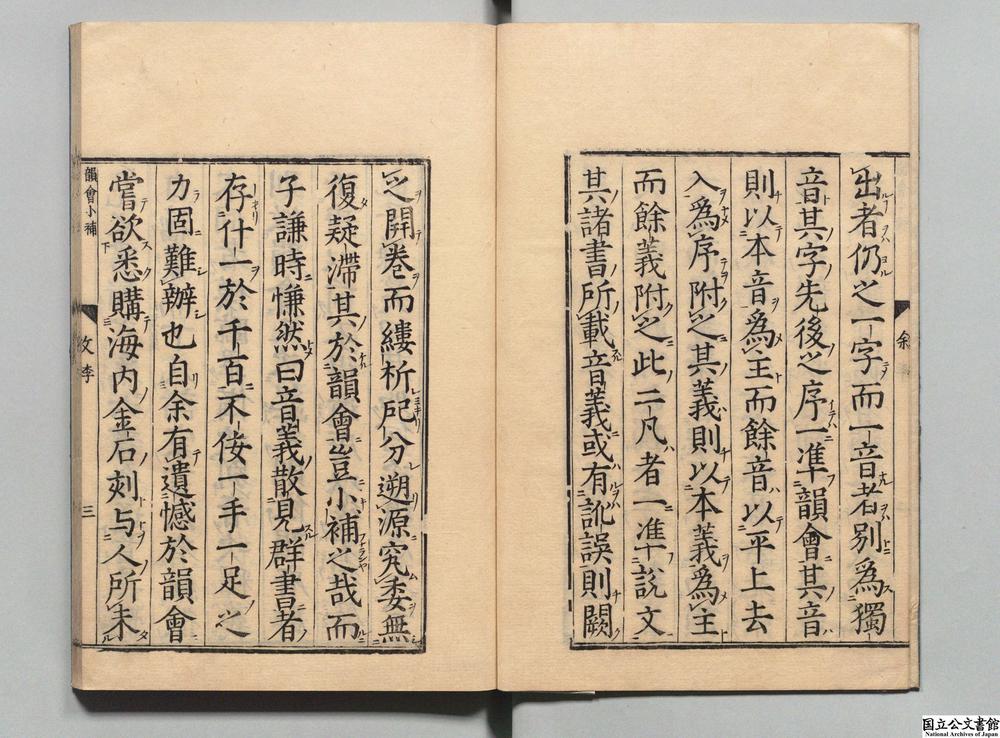 出者仍之一字而一音者別為獨
音其字先後之序一準韻會其音
則以本音為主而餘音以平上去
入為序附之其義則以本義為主
而餘義附之此二凡者一準說文
其諸書所載音義或有訛誤則闕
余
之開卷而縷析咫分遡源究委無
復疑滯其於韻會豈小補之哉而
子謙時慊然曰音義散見群書者
存什一於千百不佞一手一足之
力固難辦也自余有遺憾於韻會
嘗欲悉購海内金石刻与人所未
韻會小補
三
国立公文書館
National Archives of Japan